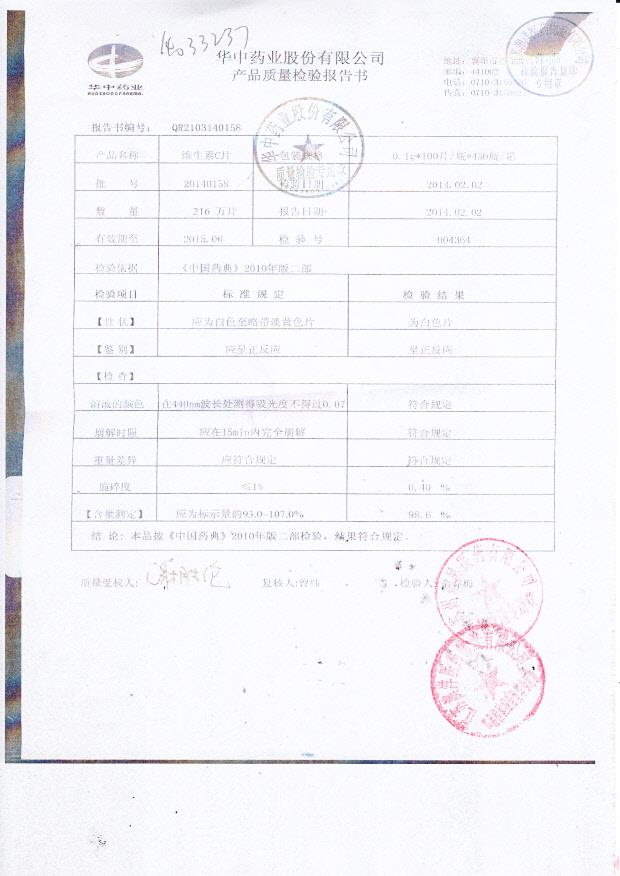 14033237
华中药业股份有限公司
产品质量检验报告书
华中药业
地址:
邮编: 441002
电话: 0710-3
传真: 0710-3
检验报告复印
专用章
报告书编号: QR2103140158
华中药业股份有限公司
质量检验专用章
产品名称 维生素C片 包装规格 0.1g*100片/瓶*450瓶/箱
批 号 20140158 检验日期 2014.02.02
数 量 216 万片 报告日期 2014.02.02
有效期至 2015.06 检 验 号 004364
检验依据 《中国药典》2010年版二部
检验项目 标 准 规 定 检 验 结 果
【性 状】 应为白色至略带淡黄色片 为白色片
【鉴 别】 应呈正反应 呈正反应
【检 查】
溶液的颜色 在440nm波长处测得吸光度不得过0.07 符合规定
崩解时限 应在15min内完全崩解 符合规定
重量差异 应符合规定 符合规定
脆碎度 ≤1% 0.40 %
【含量测定】 应为标示量的93.0~107.0% 98.6 %
结 论: 本品按《中国药典》2010年版二部检验, 结果符合规定.
质量受权人: 复核人:曾纬 检验人: